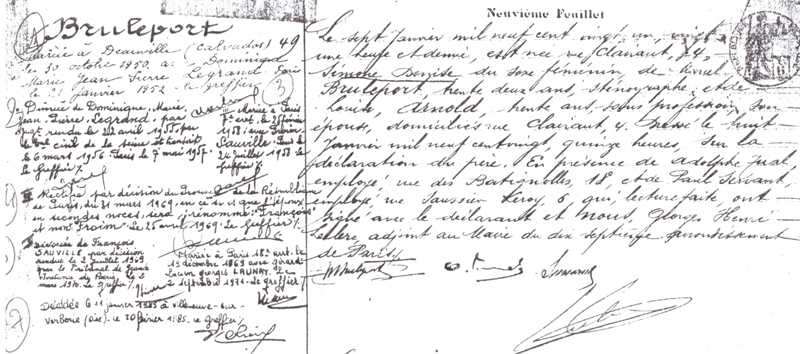 Bruleport
49
Mariée à Deauville (Calvados)
le 10 octobre 1950 à Dominique
Marie Jean Pierre Legrand Paris
le 21 janvier 1952 le greffier
Divorcée de Dominique Marie
Jean Pierre Legrand, par
jugt rendu le 22 avril 1955 par
le civil de la Seine
le 6 mars 1956 Paris le 7 mai 1957
le Greffier
Mariée à Paris
7e art. le 28 février
1958 avec
Sauville Paris le
24 juillet 1958 le
Greffier
Rectifié par décision du Procureur de la République
de Paris, du 21 mars 1969 en ce sens que l'époux
en secondes noces sera prénommé "François"
et non "Froim" le 25 avril 1969. Le Greffier
Divorcée de François
SAUVILLE par décision
rendue le 2 juillet 1969
par le Tribunal de Grande
Instance de Paris le 2
mars 1970. Le Greffier
Mariée à Paris 18e art. le
13 décembre 1969 avec Gérard
Lucien Georges LAUNAY. Le
2 septembre 1971. Le greffier
Décédée le 11 janvier 1985 à Villeneuve-sur-
Verberie (Oise). Le 20 février 1985. Le greffier
Neuvième Feuillet
Le sept Janvier mil neuf cent vingt un, vingt
une heure et demie, est née rue Clairaut, 4,
Simone Denyse du sexe féminin, de
Bruleport, trente deux ans, sténographe, et de
Louise, Arnold, trente ans, sans profession, son
épouse, domiciliés rue Clairaut, 4. Dressé le huit
Janvier mil neuf cent vingt, quinze heures, sur la
déclaration du père. En présence de Adolphe
employé, rue des Batignolles, 18, et de Paul Servant,
employé, rue Saussier Leroy, 6, qui, lecture faite, ont
signé avec le déclarant et Nous, Georges Henri
adjoint au Maire du dix septième arrondissement
de Paris